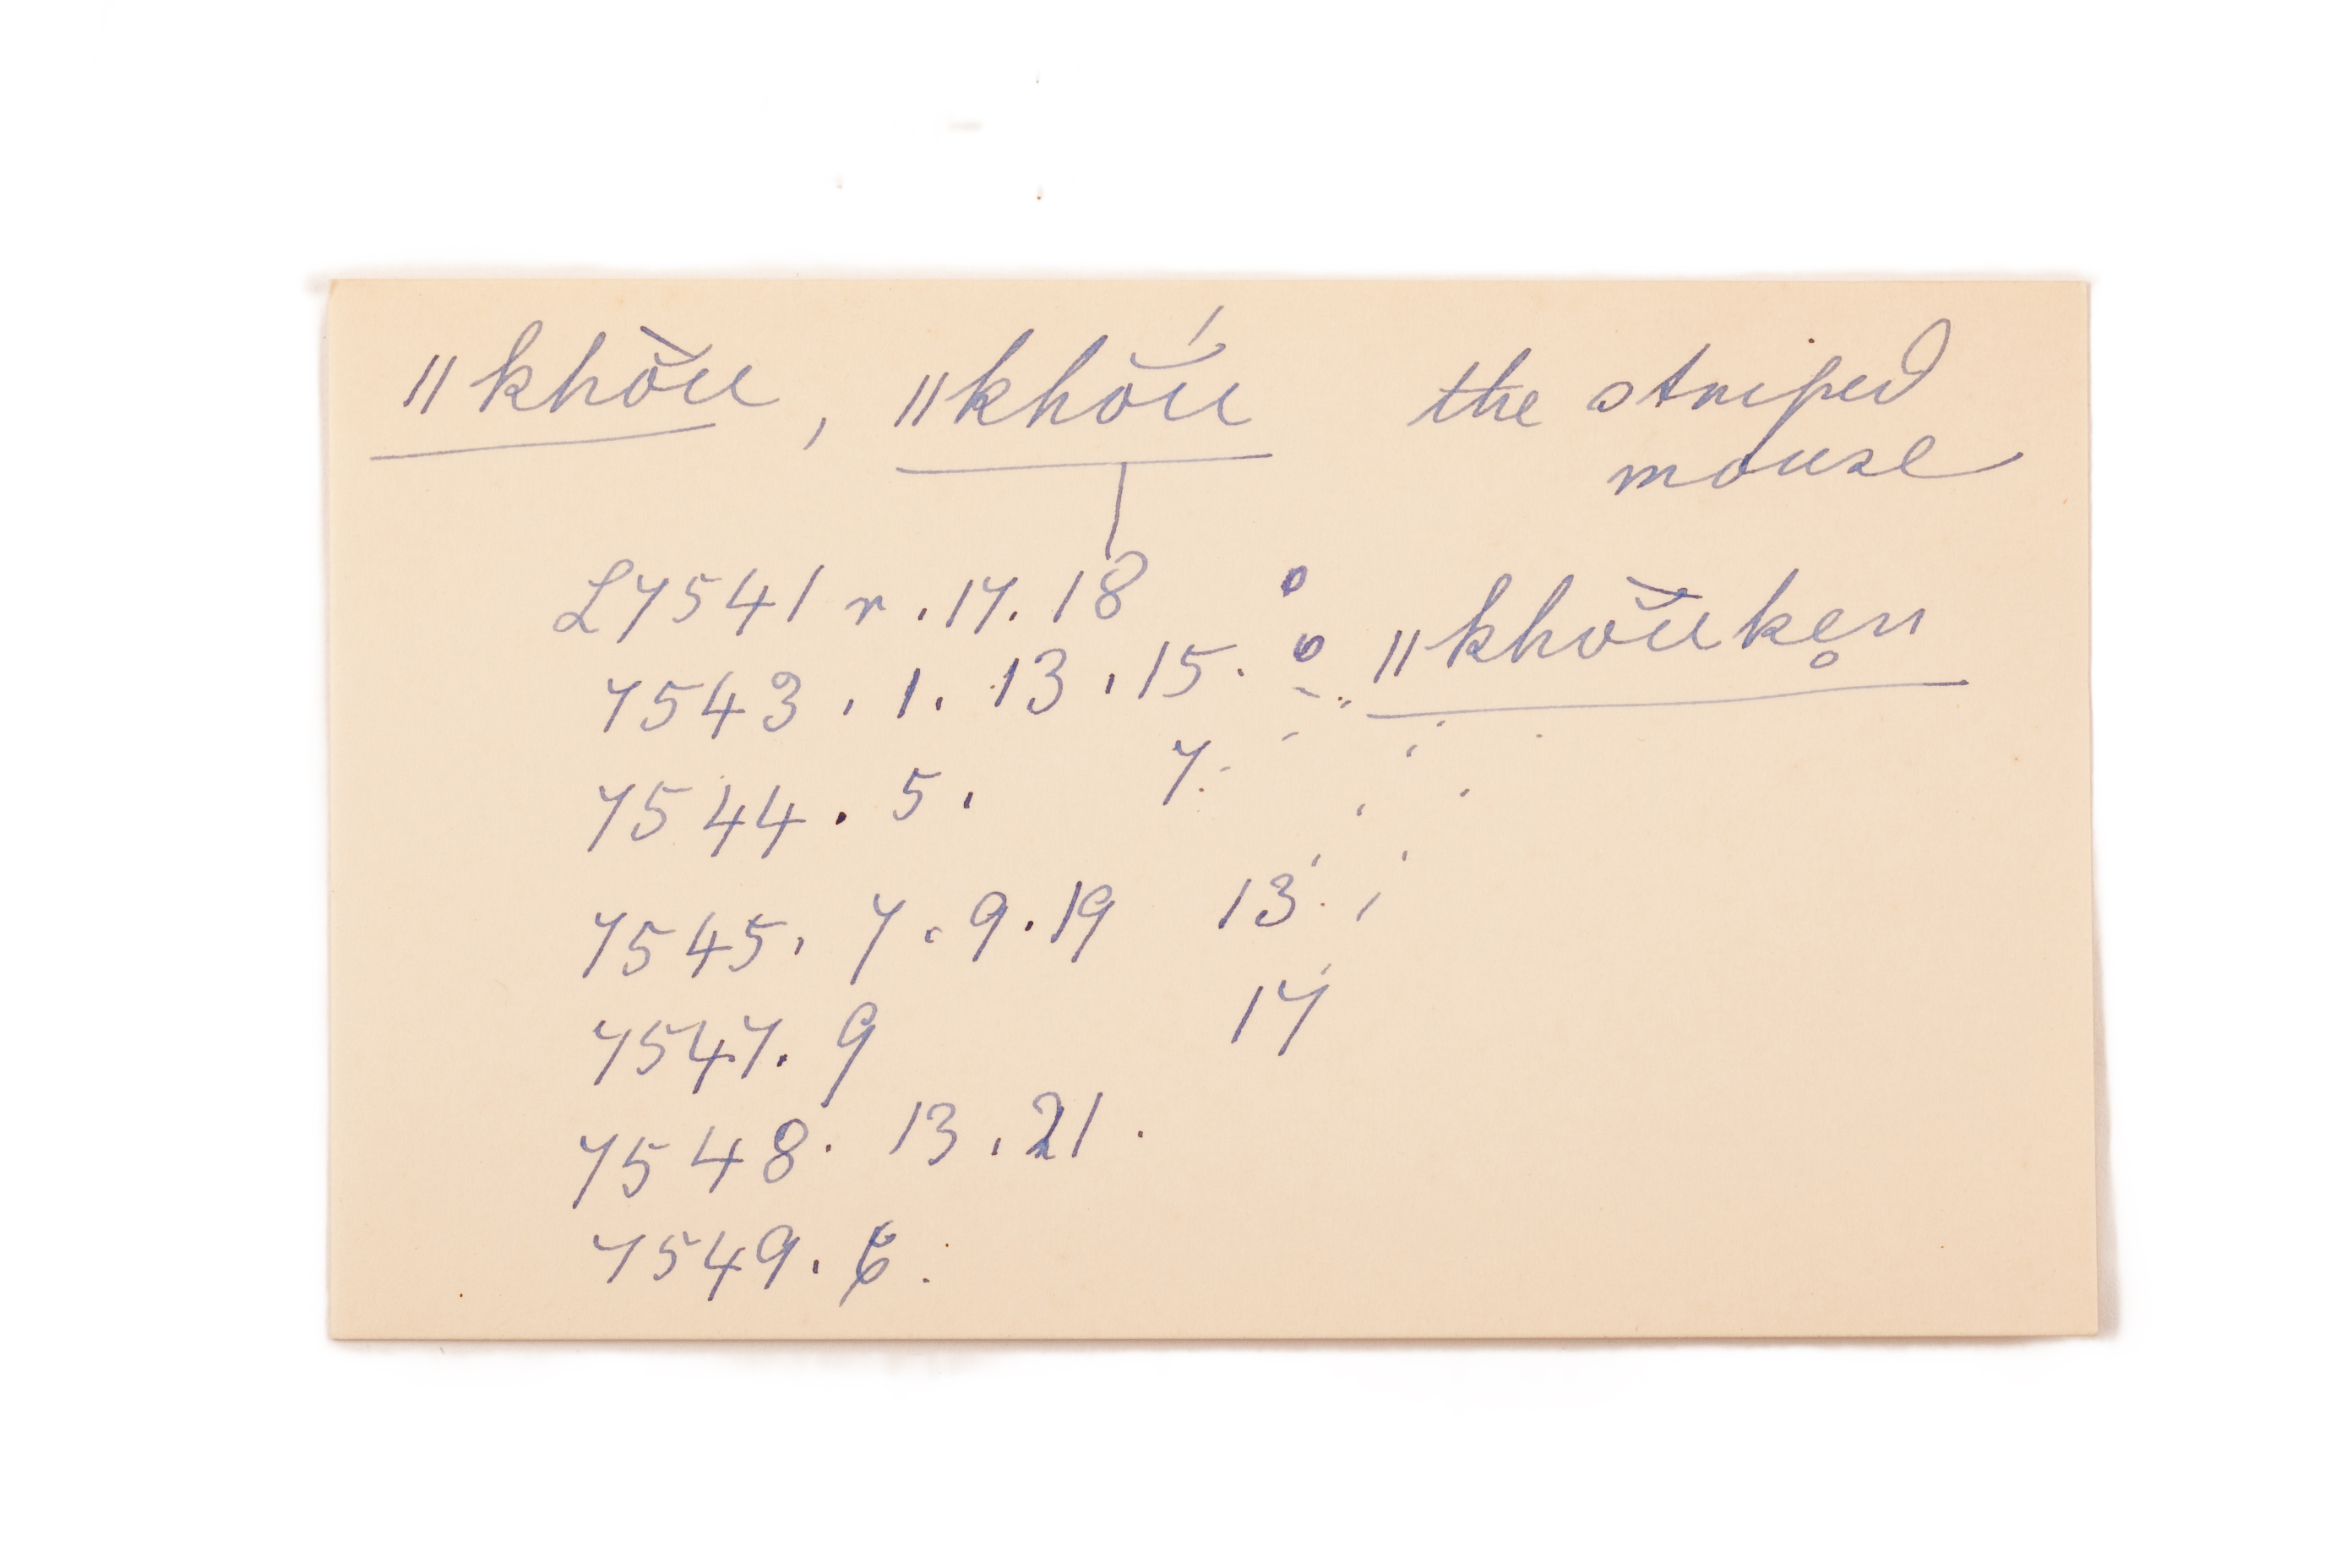 ǁkhō̆u, ǁkhṓ̆u the striped
mouse
L7541 r. 17. 18
7543. 1. 13. 15. ǁkhō̆uke̥n
7544. 5. 7.
7545. 7. 9. 19 13.
7547. 9 17
7548. 13. 21.
7549. 6.